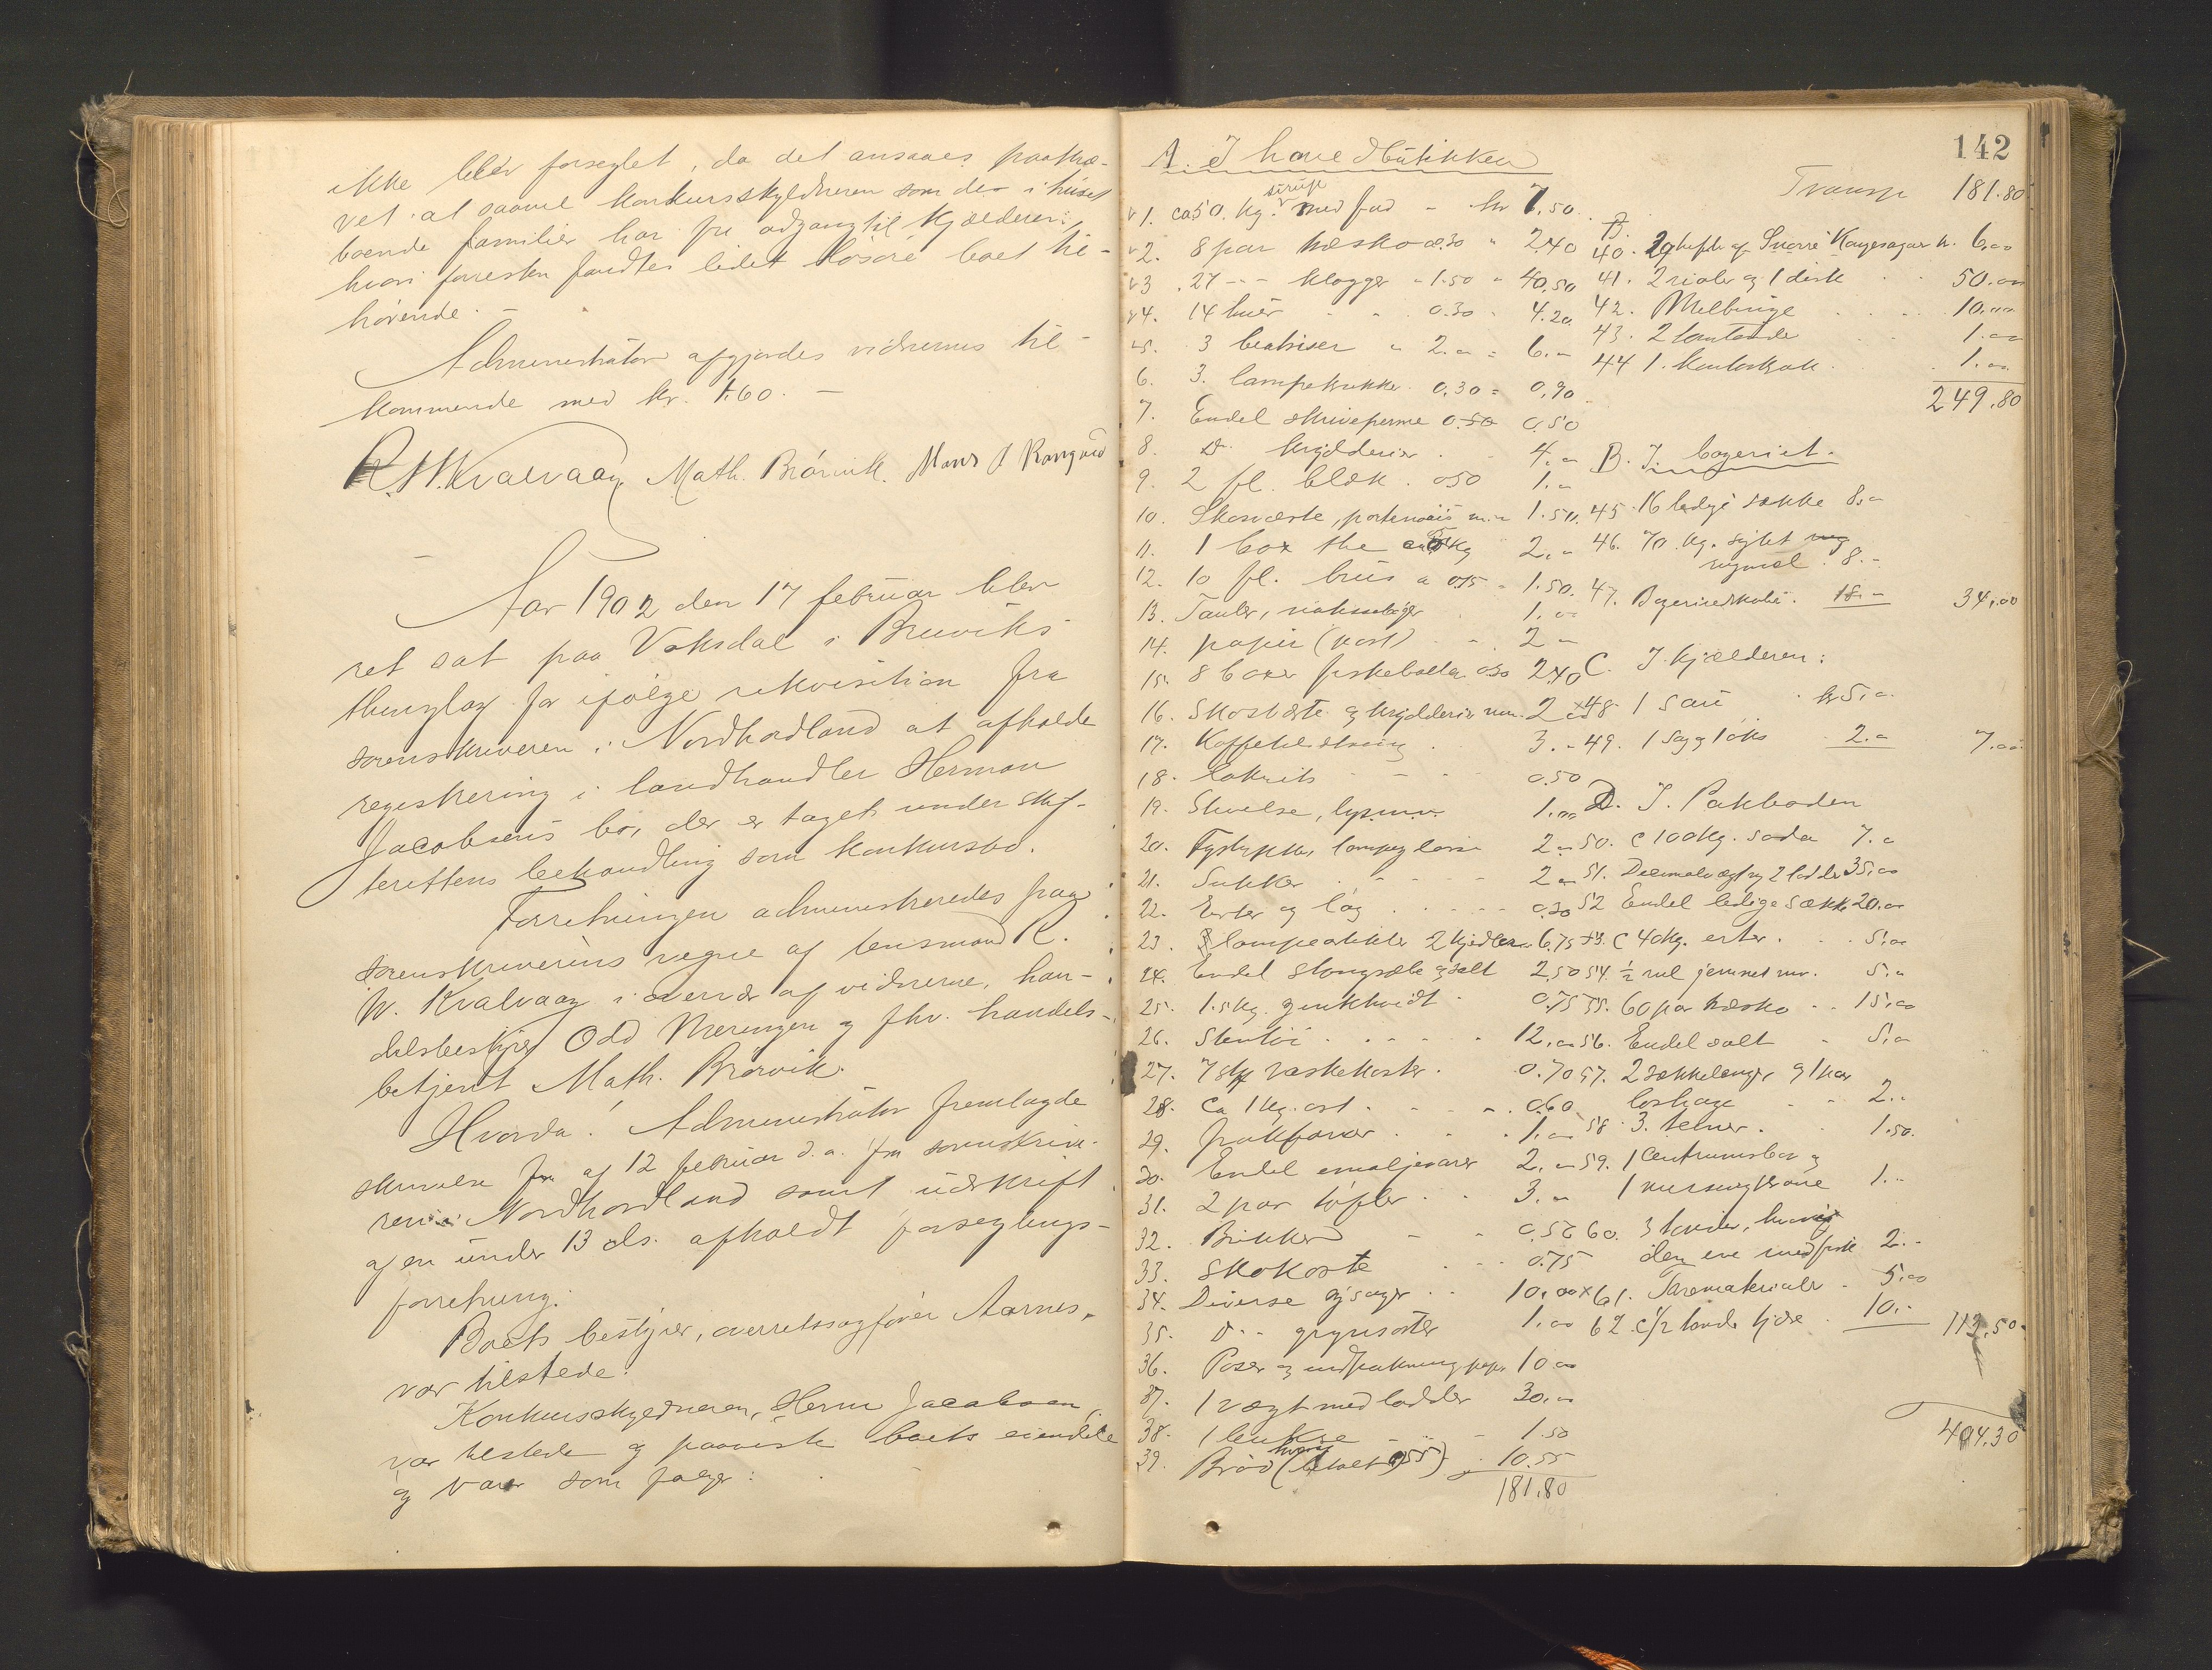 ikke blev forseglet, da det ansaaes paakræ-
vet at saavel konkursskyldneren som de i huset
boende familier har fri adgang til kjælderen:
hvori forresten fandtes lidet løsøre boet til-
hørende. -
Administrator afgjordes vidnernes til-
kommende med kr. 1.60. -
R. W. Kvalvaag Math. Brørvik. Mons J Rangaard
Aar 1902 den 17 februar blev
ret sat paa Vaksdal i Bruviks
thinglag for ifølge rekvisition fra
sorenskriveren i Nordhordland at afholde
registrering i landhandler Herman
Jacobsens bo, der er taget under skif-
terettens behandling som konkursbo.
Forretningen administreredes paa
sorenskriverens vegne af lensmand R.
W. Kvalvaag i overvær af vidnerne, han-
delsbestyrer Odd Meringen og fhv. handels-
betjent Math. Brørvik.
Hvorda: Administrator fremlagde
skrivelse fra af 12 februar d. a. fra sorenskrive-
ren i Nordhordland samt udskrift
af en under 13 ds. afholdt forseglings-
forretning.
Boets bestyrer, overretssagfører Aarnes,
var tilstede.
Konkursskyldneren, Herm Jacobsen,
var tilstede og paaviste boets eiendele
og varer som følger:
142
A. I hovedbutikken
1. ca 50. kg. sirup med fad - kr 7.50
2. 8 par hæsko a 30 " 2.40
3. 27 - - klogger - 1.50 - 40.50
4. 14 huer - - 0.30 - 4.20
5. 3 beatriser " 2.- = 6.-
6. 3. lampekukker. 0,30 = 0,90
7. Endel skrivepenne 0.50 0.50
8. Do krydderier - 4.-
9. 2 fl. blæk . 050 1.-
10. Skosværte, portemonais m.m 1.50.
11. 1 box the ca kg 2.-
12. 10 fl. brus a 0.15 - 1.50.
13. Tavler, 1.00
14. papir (post) - - 2 -
15. 8 boxer fiskeboller 0.30 2.40
16. Skosværte og krydderier mm. 2 -
17. Kaffetilsætning . 3. -
18. lakrits - - - 0.50
19. Stivelse, lys m.v. 1.00
20. Fyrstikker, lampeglas 2 -
21. Sukker . - - - 2 -
22. Erter og løg . . - - - 0.30
23. 2 kjedler 6.75
24. Endel stangsæbe og salt 2.50
25. 1.5 kg. zinkhvidt - 0.75
26. Stentøi . . - - - 12.00
27. 7 stk vaskekoster . 0.70
28. Ca 1 kg. ost . - - - . 0.60
29. . . - 1.00
30. Endel emaljevarer 2. -
31. 2 par tøfler . . - 3. -
32. Brikker - - 0.50
33. Skokoste . - - 0.75
34. Diverse sysager . . 10.00
35. D - - grynsorter 1.00
36. Poser og indpakningspapir 10 00
37. 1 vægt med lodder 30.00
38. 1 - - 1.50
39. Brød ( ) 10.55
181.80
Transp 181.80
40. 29 hefter af Snorre Kongesagaer kr. 6.00
41. 2 reoler og 1 disk - - 50.00
42. Melbinge - . . . 10.00
43. 2 - - 1.00
44 1. kontorkrak . . 1.00
249.80
B. I bageriet.
45. 16 ledige sække 8.-
46. 70 kg. sigtet
rugmel . 8. -
47. Bageriredskaber . 18. - 34.00
C. I kjælderen:
48. 1 sau - kr 5.00
49. 1 sag 1 øks - 2.- 7.00
D. I. Pakboden
50. C 100 kg. soda 7.-
51. Decimalvægt og 2 lodder 35.00
52 Endel ledige sække 20.00
53. C 40 kg. erter . . . 5.00
54. ½ rul jernnet mv. 5.-
55. 60 par hæsko . . 15.00
56. Endel salt - 5.-
57. 2 sækkelænger og 1 par
- - 2.-
58. 3. . - 1.50.
59. 1 Centrumsbor og
1 1. -
60. 3 tønder, hvoraf
den ene med fisk 2. -
61. Farvematerialer . 5.00
62. C ½ tønde tjære . 10. - 113.50
404.30